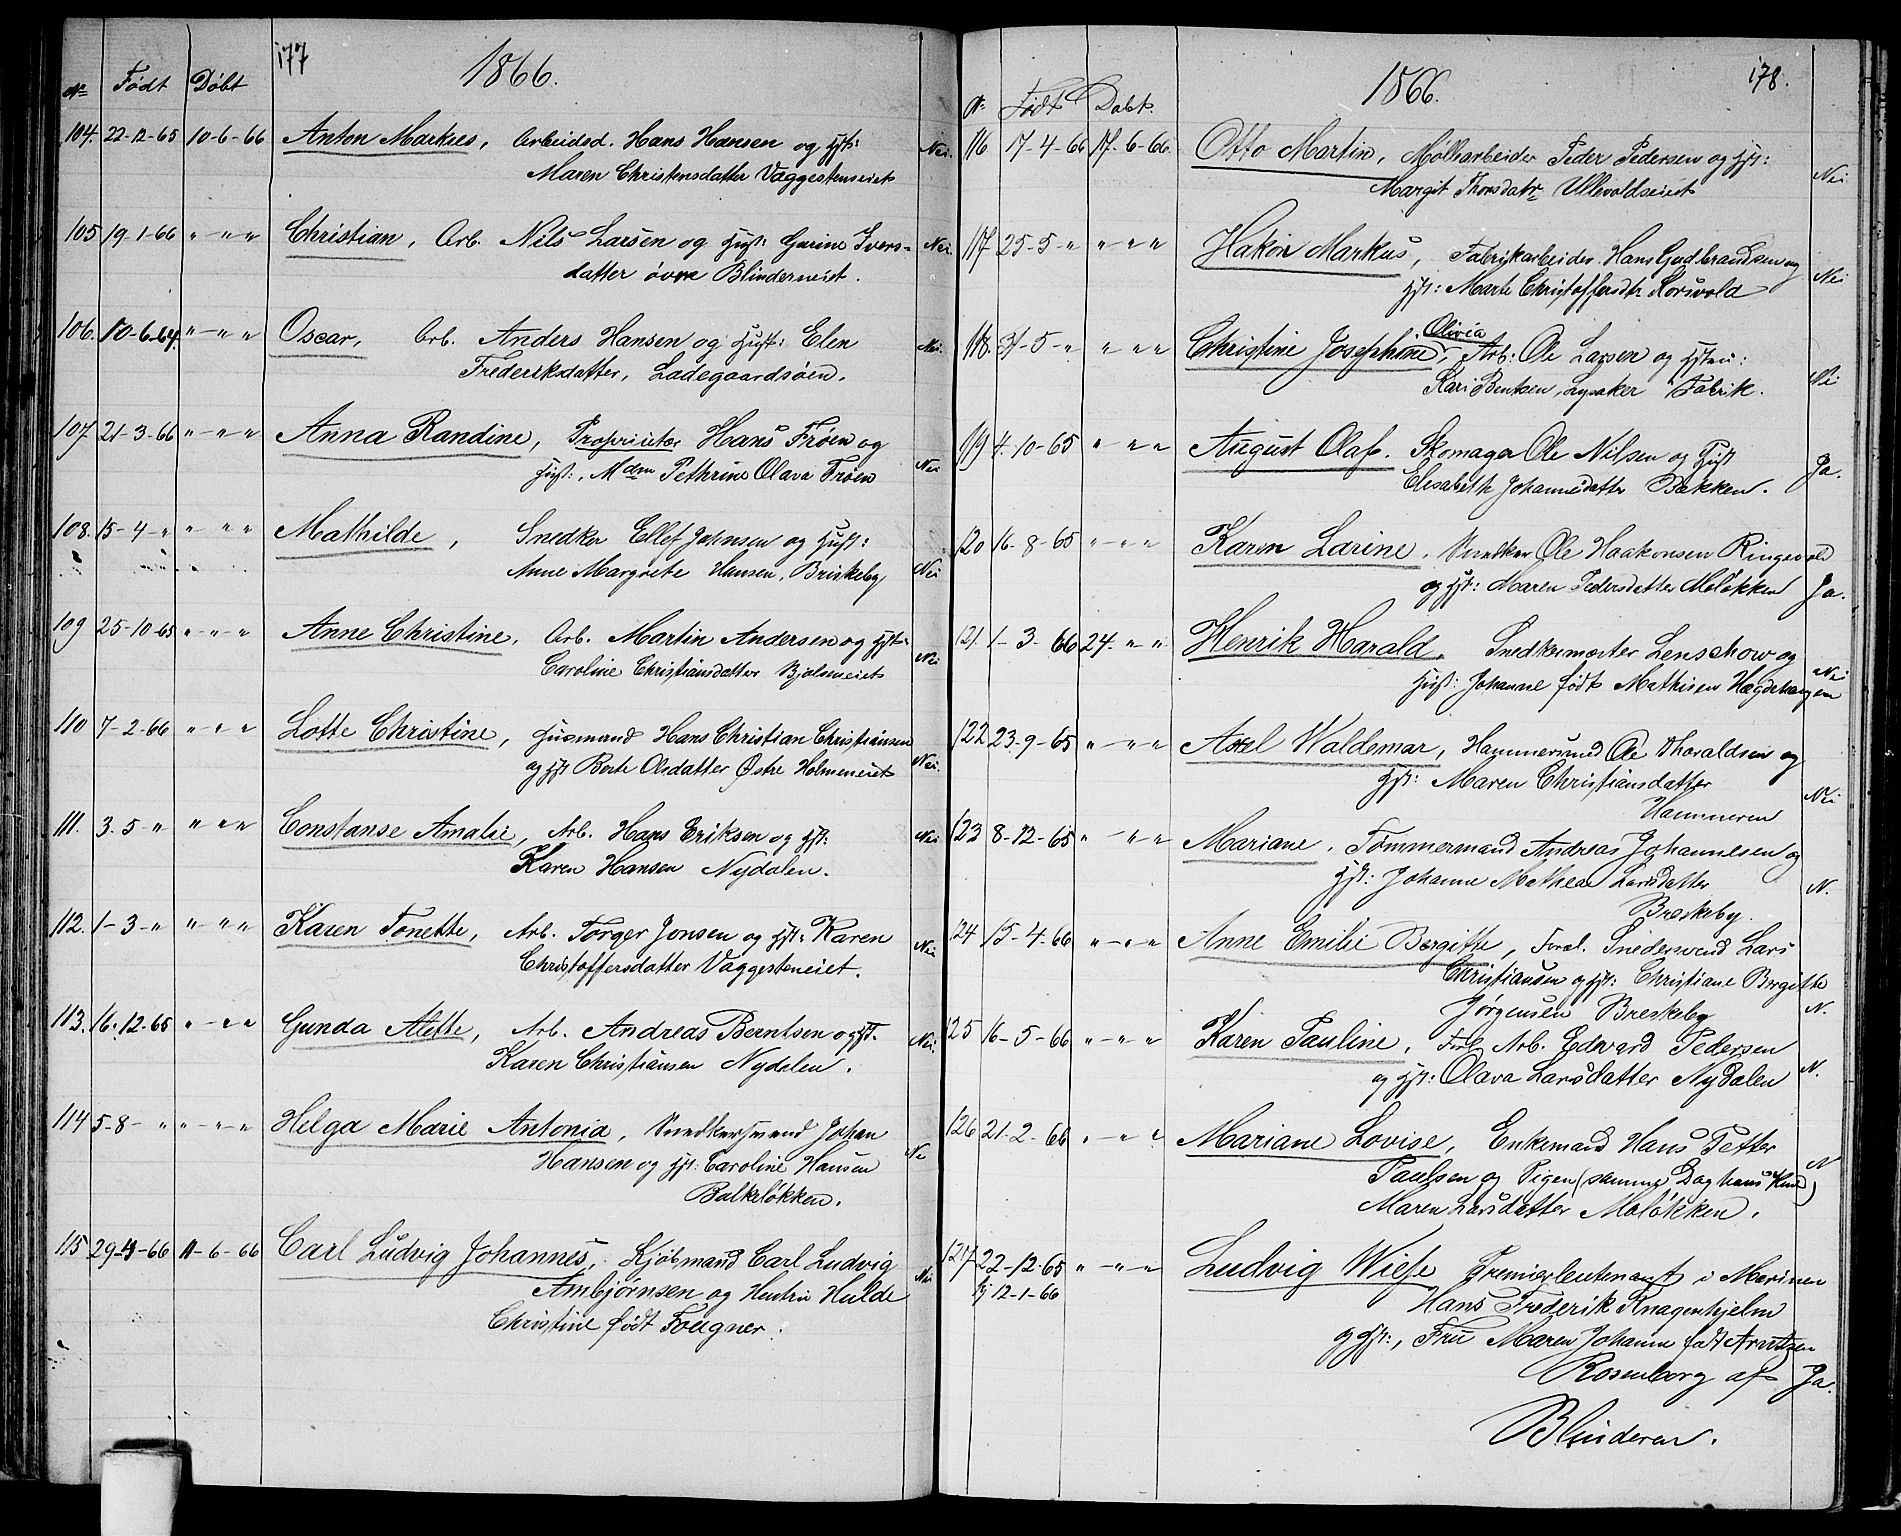 177
1866.
No Født Døbt
104. 22-12-65 10-6-66 Anton Markus, Arbeidsd. Hans Hansen og Hust: Nei.
Maren Christensdatter Vaggestenseiet
105 19-1-66 " -"-" Christian, Arb. Nils Larsen og Hust: Gurine Ivers- Nei.
datter øvre Blinderneiet.
106. 10-6-64. "-"-" Oscar, Arb. Anders Hansen og Hust: Elen Nei.
Frederiksdatter, Ladegaardsøen.
107 21-3-66 "-"-" Anna Randine, Proprietær Hans Frøen og
Hust:, Mdm Pethrine Olava Frøen Nei
108. 15-4-" "-"-" Mathilde, Snedker Ellef Johnsen og Hust:
Anne Margrete Hansen, Briskeby Nei
109 25-10-65 "-"-" Anne Christine, Arb. Martin Andersen og Hst:
Caroline Christiansdatter Bjølseneiet Nei
110 7-2-66 "-"-" Lotte Christine, Husmand Hans Christian Christiansen
og Hst Berte Olsdatter Østre Holmeneiet Nei.
111. 3-5-" "-"-" Constanse Amalie, Arb. Hans Eriksen og Hst: Nei
Karen Hansen Nydalen.
112. 1-3-" "-"-" Karen Tonette, Arb. Torger Jonsen og Hst: Karen Nei
Christoffersdatter Vaggesteneiet.
113. 16-12-65 "-"-" Gunda Alette, Arb. Andreas Berntsen og Hst. Nei.
Karen Christiansen Nydalen.
114 5-8-" "-"-" Helga Marie Antonia, Snedkersvend Johan
Hansen og Hst: Caroline Hansen Ne
Balkeløkken.
115 29-4-66 11-6-66 Carl Ludvig Johannes, Kjøbmand Carl Ludvig
Ambjørnsen og Hustru Hulde Nei
Christine født Fougner.
178.
1866.
No Født Døbt.
116 17-4-66 17-6-66. Otto Martin, Møllearbeider Peder Pedersen og Hst: Nei
Margit Thorsdatr Ullevoldseiet
117 25-5-" "-"-" Hakon Markus, Fabrikarbeider Hans Gudbrandsen og Nei
Hst: Marte Christoffersdtr Korsvold
118. 31-5-" " " " Christine Josephine Olivia, Arb: Ole Larsen og Hstru:
Kari Bentsen, Lysaker Fabrik. Nei
119 4-10-65 " "-" August Olaf. Skomager Ole Nilsen og Hust
Elisabeth Johannesdatter Bakken. Ja.
120 16-8-65 "-"-" Karen Larine, Snedker Ole Haakonsen Ringevold
og Hst: Maren Pedersdatter Meløkken Ja.
121. 1-3-66 24. "-" Henrik Harald. Snedkermester Lenschow og
Hust: Johanne født Mathisen Hægdehaugen Nei
122 23-9-65 "-"-" Axel Waldemar, Hammersmed Ole Thoraldsen og
Hst: Maren Christiansdatter Nei
Hammeren
123 8-12-65 " -"-" Mariane, Tømmermand Andreas Johannesen og
Hst: Johanne Mathea Larsdatter N.
Breskeby.
124 15-4-66 "-"-" Anne Emilie Bergitte, Foræl. Snedersvend Lars
Christiansen og Hst: Christiane Bergitte
Jørgensen Breskeby N.
125 16-5-66 "-"-" Karen Pauline, Forl. Arb. Edevard Pedersen
og Hst: Olava Larsdatter Nydalen N.
126 21-2-66 "-"-" Mariane Lovise, Enkemand Hans Petter
Paulsen og Pigen (samme Dag hans Hustru) N
Maren Larsdatter Meløkken.
127 22-12-65 "-"-" Ludvig Wiese Premierleutenant i Marinen
Hj 12-1-66 Hans Frederik Knagenhjelm
og Hst:, Fru Maren Johanne født Arntzen
Rosenborg af Ja.
Blinderen.